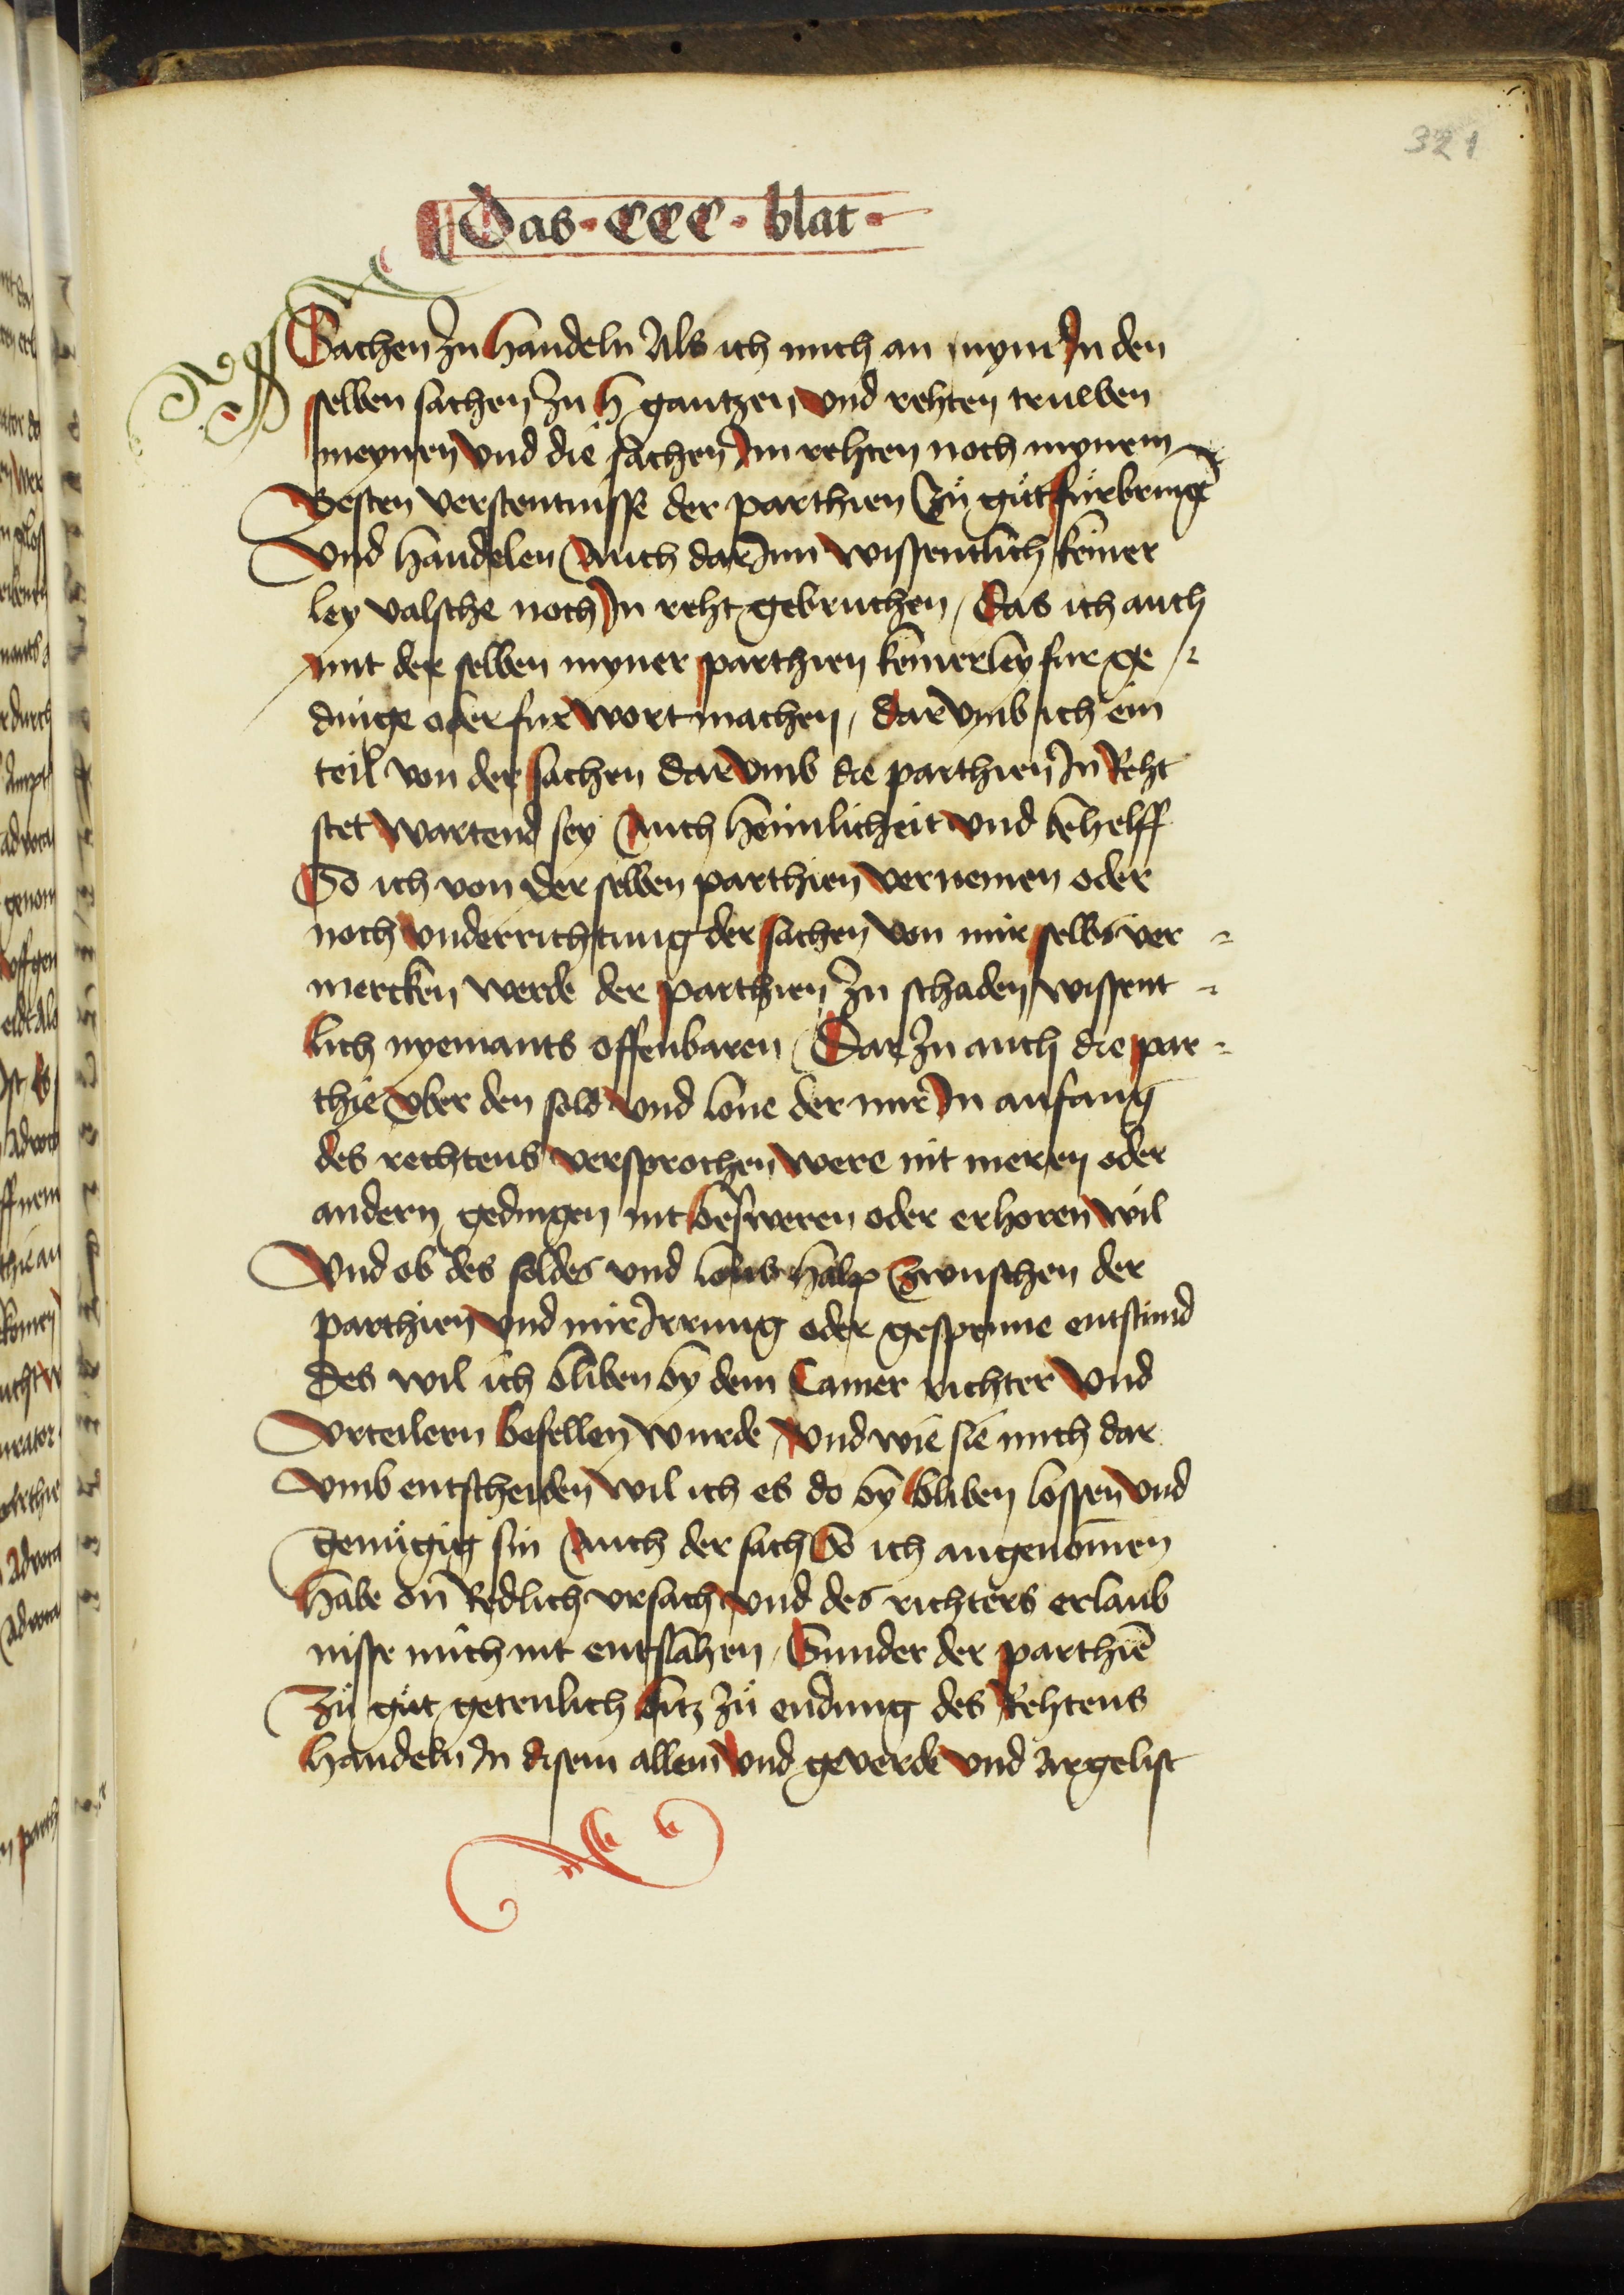 321
Das · CCC · blat ·
Sachen zu handeln Als ich mich an nyme In den
selben sachen zu h gantzen vnd rehten truwen
meynen vnd die sachen Im rehten noch mynem
Besten verstentnisse der parthien zů gůt fürbringē
Vnd handelen Auch dar Inn wissentlich keiner
ley valsche noch In reht gebruchen / Das ich auch
mit der selben myner parthien keinerley fur ge
dinge oder furwort machen / dar vmb ich ein
teil von der sachen dar vmb die parthien In Reht
stet wartend sey Auch heimlicheit vnd behelff
So ich von der selben parthien vernemen oder
noch vnderrichtung der sachen von mir selbs ver
mercken werde der parthien zu schaden wissent
lich nyemants offenbaren / Dar zu auch die par
thie vber den sold vnd lone der mir In anfang
des rechtens versprochen were mit meren oder
andern gedingen nit besweren oder erhoren wil
Vnd ob des soldes vnd lons halp Zwuschen der
parthien vnd mir Irrung oder gespenne entstund
Des wil ich bliben by dem Camer richter vnd
Vrteilern Befellen wurde / vnd wie sie mich dar
vmb entscheiden wil ich es do by bliben lossen vnd
genůgig sin Auch der sach So ich angenomen
habe on Redlich vrsach vnd des richters erlaub
nisse mich nit entslahen / Sunder der parthiē
Zů gůt getrulich bitz zů endung des Rehtens
handeln In disem allem vnd geverde vnd argelist